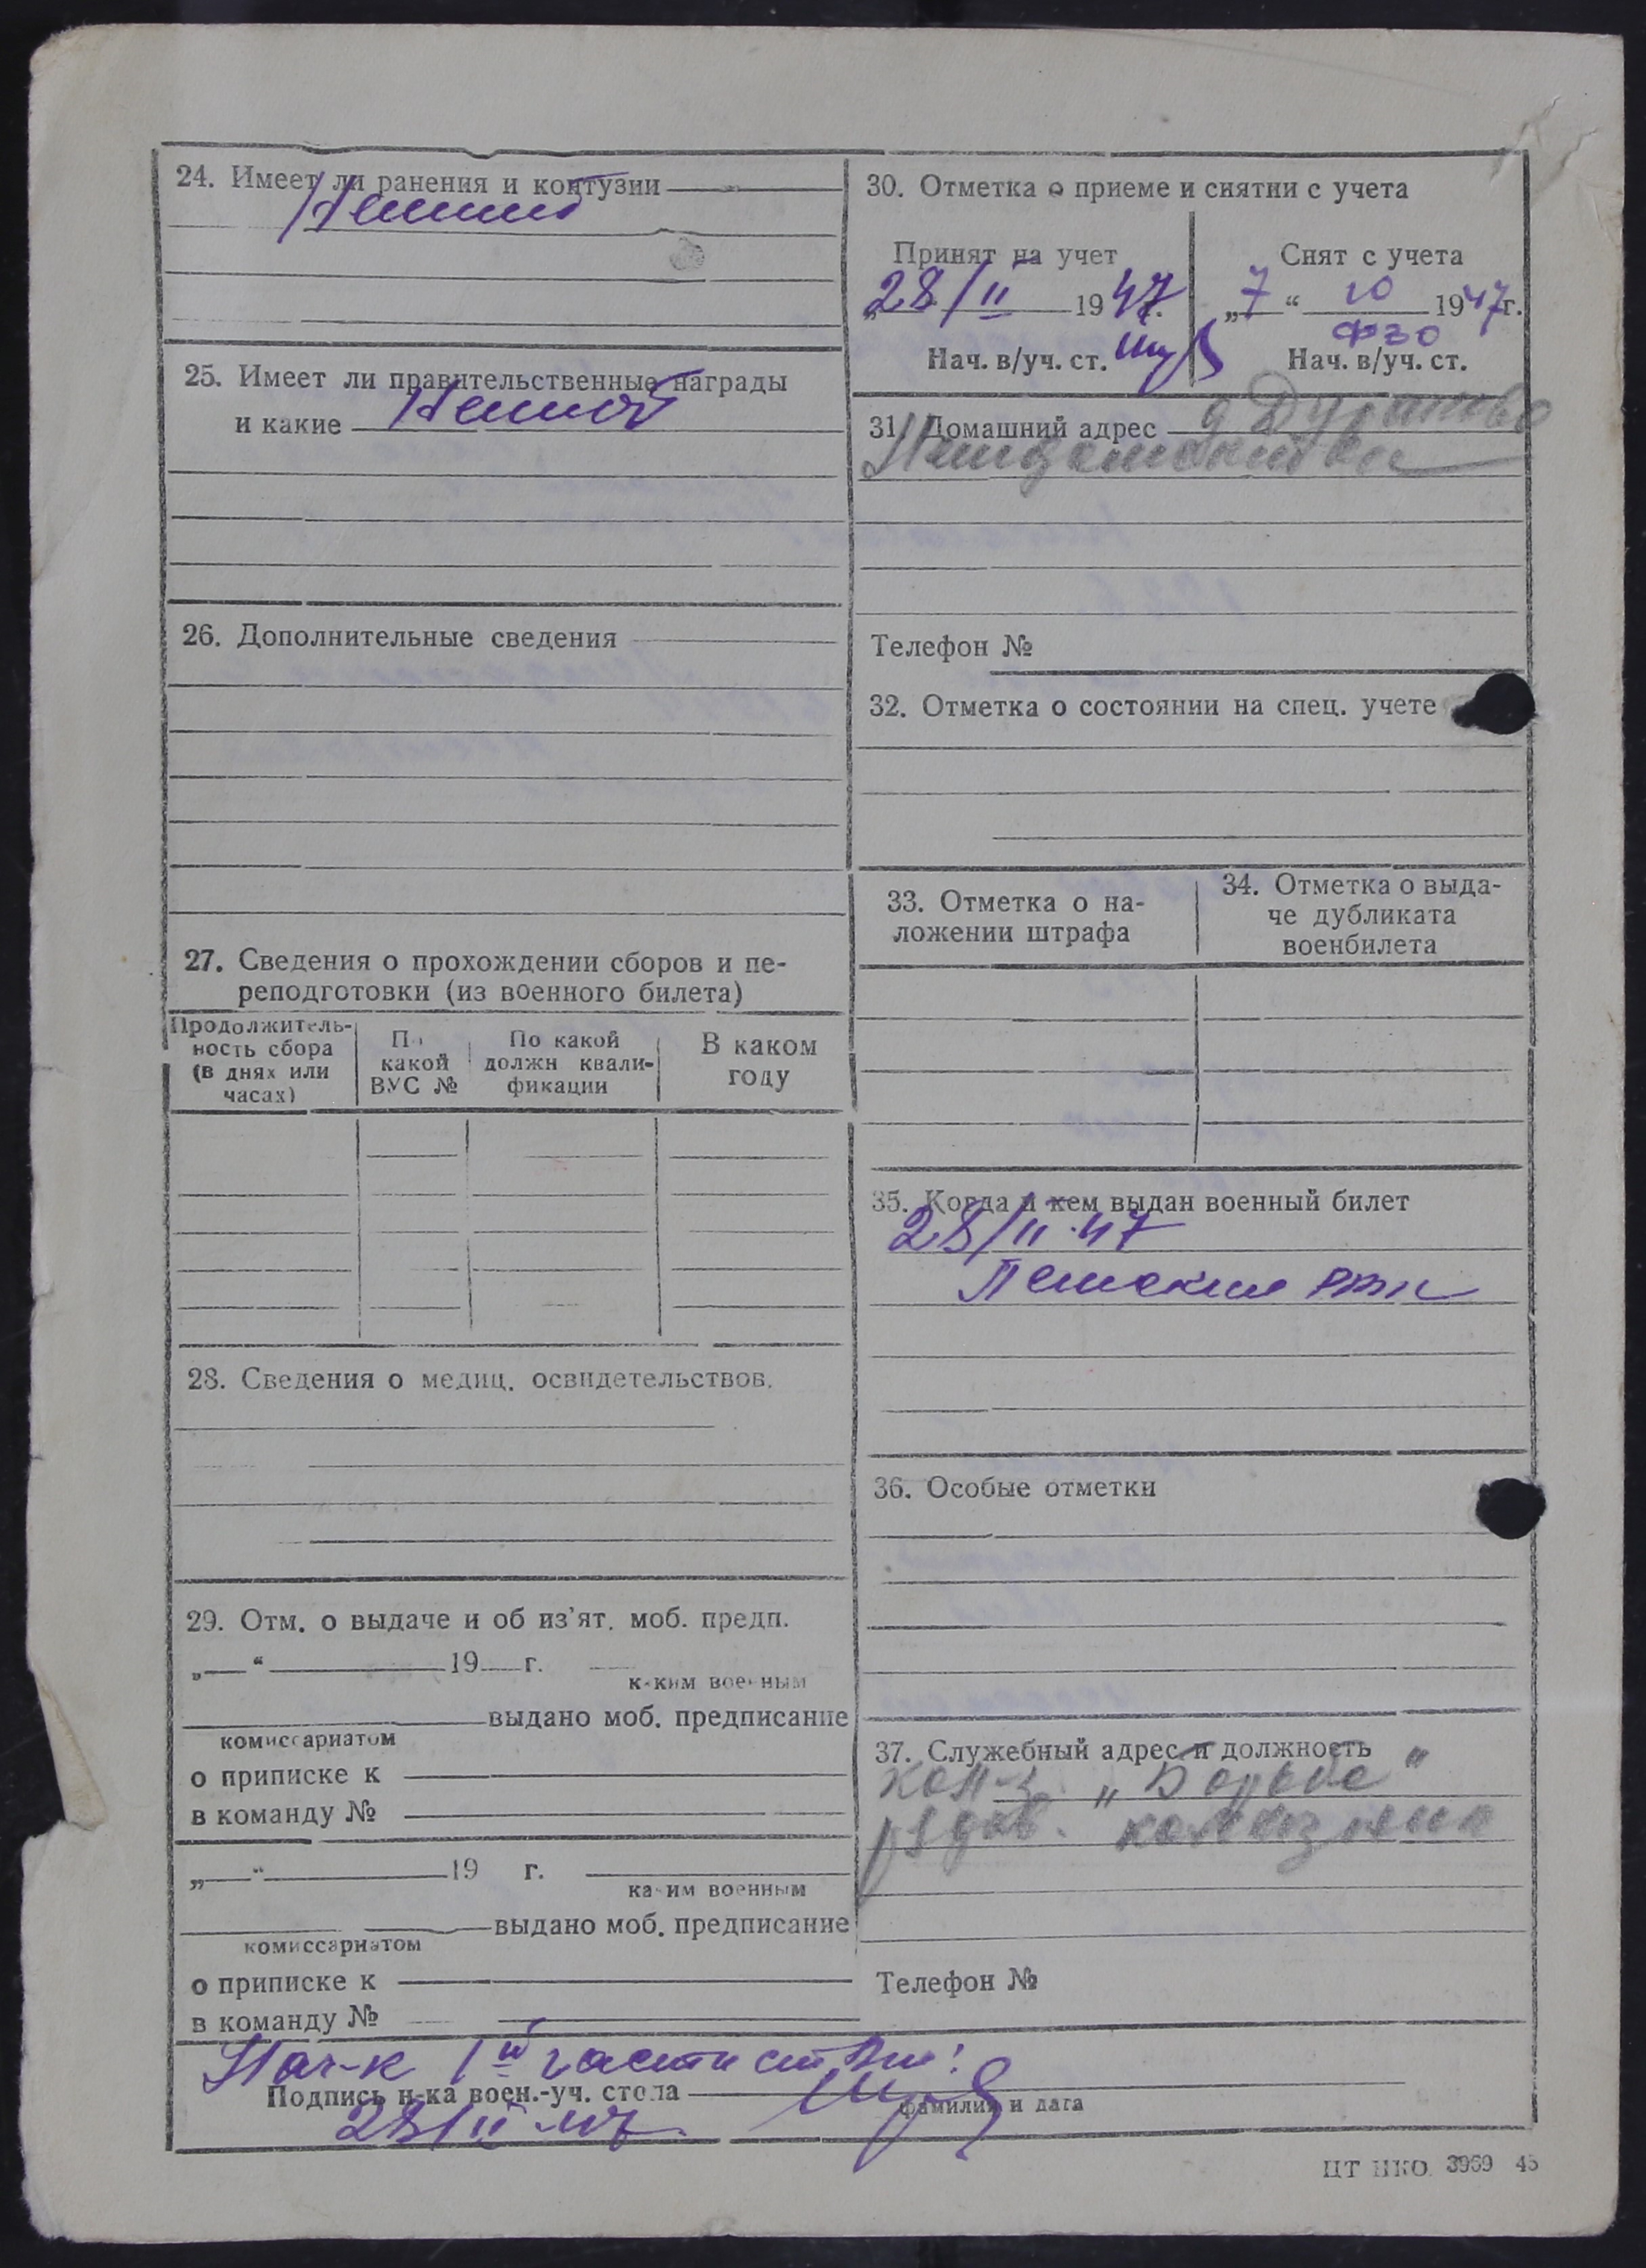 24. Имеет ли ранения и контузии
Не имеет
25. Имеет ли правительственные награды
и какие Не имеет
26. Дополнительные сведения
27. Сведения о прохождении сборов и пе-
реподготовки (из военного билета)
Продолжитель-
ность сбора
(в днях или
часах)
По
какой
ВУС №
По какой
должн квали-
фикации
В каком
году
28. Сведения о медиц. освидетельствов.
29. Отм. о выдаче и об из'ят. моб. предп.
„ “ 19 г.
каким военным
выдано моб. предписание
комиссариатом
о приписке к
в команду №
„ “ 19 г.
каким военным
выдано моб. предписание
комиссариатом
о приписке к
в команду №
30. Отметка о приеме и снятии с учета
Принят на учет
„28/II 1947г.
Нач. в/уч. ст.
Снят с учета
„7“ 10 1947г.
ФЗО
Нач. в/уч. ст.
31. Домашний адрес д
Телефон №
32. Отметка о состоянии на спец. учете
33. Отметка о на-
ложении штрафа
34. Отметка о выда-
че дубликата
военбилета
35. Когда и кем выдан военный билет
28/II-47
РВК
36. Особые отметки
37. Служебный адрес и должность
кол-з „Борьба“
рядов. колхозник
Телефон №
Нач-к 1й части
Подпись н-ка воен.-уч. стола
фамилия и дата
28/II-47
ЦТ НКО 3969 45